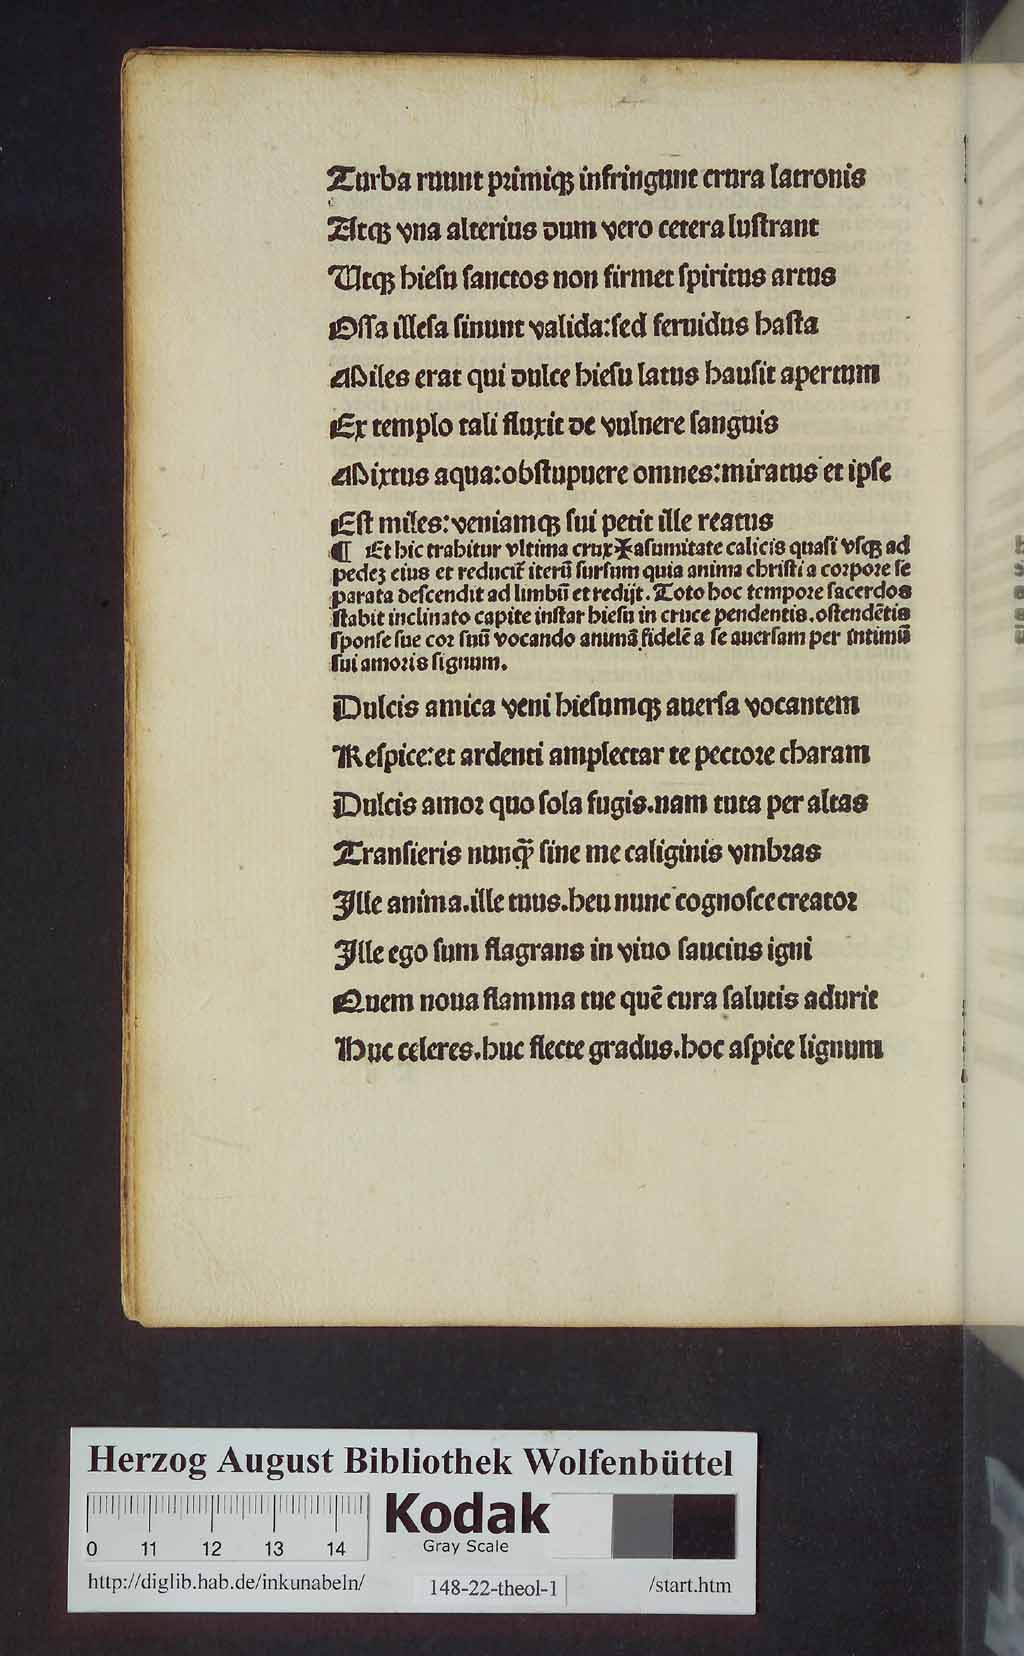 Turba ruunt primiqꝫ infringunt crura latronis
Atqꝫ vna alterius dum vero cetera luſtrant
Utqꝫ hieſu ſanctos non firmet ſpiritus artus
Oſſa illeſa ſinunt valida:ſed feruidus haſta
Miles erat qui dulce hieſu latus hauſit apertum
Ex templo tali fluxit de vulnere ſanguis
Mixtus aqua:obſtupuere omnes:miratus et ipſe
Eſt miles:veniamqꝫ ſui petit ille reatus
¶ Et hic trahitur vltima crux✠aſumitate calicis quaſi vſqꝫ ad
pedeꝫ eius et reducit̄ iterū ſurſum quia anima chriſti a corpore ſe
parata deſcendit ad limbū et redijt. Toto hoc tempore ſacerdos
ſtabit inclinato capite inſtar hieſu in cruce pendentis.oſtendētis
ſponſe ſue cor ſuū vocando animā fidelē a ſe auerſam per intimū
ſui amoris ſignum.
Dulcis amica veni hieſumqꝫ auerſa vocantem
Reſpice:et ardenti amplectar te pectore charam
Dulcis amor quo ſola fugis.nam tuta per altas
Tranſieris nunq̄ ſine me caliginis vmbras
Ille anima.ille tuus.heu nunc cognoſce creator
Ille ego ſum flagrans in viuo ſaucius igni
Quem noua flamma tue quē cura ſalutis adurit
Huc celeres.huc flecte gradus.hoc aſpice lignum
Herzog August Bibliothek Wolfenbüttel
0 11 12 13 14
Kodak
Gray Scale
http://diglib.hab.de/inkunabeln/ 148-22-theol-1 /start.htm